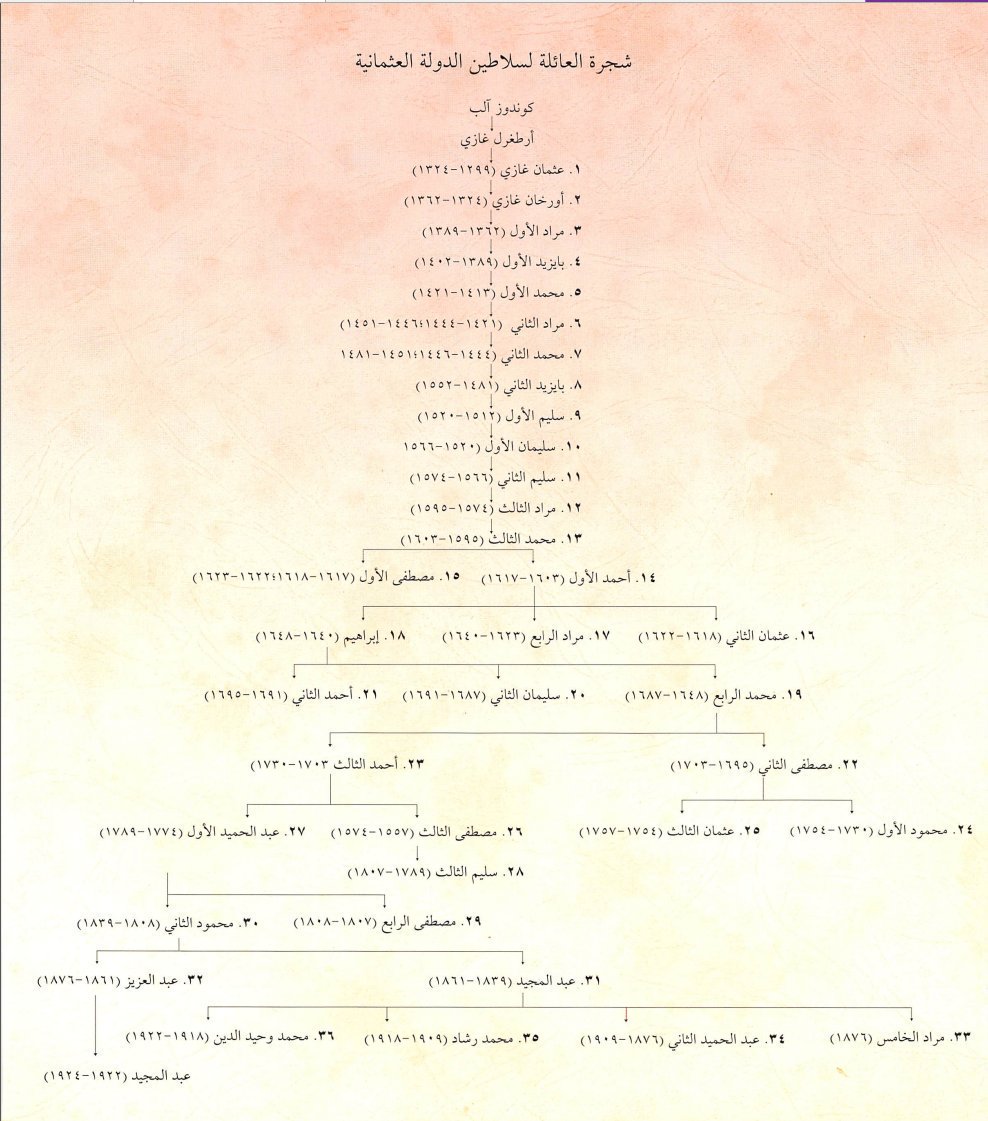 شجرة العائلة لسلاطين الدولة العثمانية
كوندوز آلب
أرطغرل غازي
١. عثمان غازي (١٢٩٩-١٣٢٤)
٢. أورخان غازي (١٣٢٤-١٣٦٢)
٣. مراد الأول (١٣٦٢-١٣٨٩)
٤. بايزيد الأول (١٣٨٩-١٤٠٢)
٥. محمد الأول (١٤١٣-١٤٢١)
٦. مراد الثاني (١٤٢١-١٤٤٤؛١٤٤٦-١٤٥١)
٧. محمد الثاني (١٤٤٤-١٤٤٦؛١٤٥١-١٤٨١
٨. بايزيد الثاني (١٤٨١-١٥٥٢)
٩. سليم الأول (١٥١٢-١٥٢٠)
١٠. سليمان الأول (١٥٢٠-١٥٦٦
١١. سليم الثاني (١٥٦٦-١٥٧٤)
١٢. مراد الثالث (١٥٧٤-١٥٩٥)
١٣. محمد الثالث (١٥٩٥-١٦٠٣)
١٤. أحمد الأول (١٦٠٣-١٦١٧) ١٥. مصطفى الأول (١٦١٧-١٦١٨؛١٦٢٢-١٦٢٣)
١٦. عثمان الثاني (١٦١٨-١٦٢٢) ١٧. مراد الرابع (١٦٢٣-١٦٤٠) ١٨. إبراهيم (١٦٤٠-١٦٤٨)
١٩. محمد الرابع (١٦٤٨-١٦٨٧) ٢٠. سليمان الثاني (١٦٨٧-١٦٩١) ٢١. أحمد الثاني (١٦٩١-١٦٩٥)
٢٢. مصطفى الثاني (١٦٩٥-١٧٠٣) ٢٣. أحمد الثالث ١٧٠٣-١٧٣٠)
٢٤. محمود الأول (١٧٣٠-١٧٥٤) ٢٥. عثمان الثالث (١٧٥٤-١٧٥٧) ٢٦. مصطفى الثالث (١٥٥٧-١٥٧٤) ٢٧. عبد الحميد الأول (١٧٧٤-١٧٨٩)
٢٨. سليم الثالث (١٧٨٩-١٨٠٧)
٢٩. مصطفى الرابع (١٨٠٧-١٨٠٨) ٣٠. محمود الثاني (١٨٠٨-١٨٣٩)
٣١. عبد المجيد (١٨٣٩-١٨٦١) ٣٢. عبد العزيز (١٨٦١-١٨٧٦)
٣٣. مراد الخامس (١٨٧٦) ٣٤. عبد الحميد الثاني (١٨٧٦-١٩٠٩) ٣٥. محمد رشاد (١٩٠٩-١٩١٨) ٣٦. محمد وحيد الدين (١٩١٨-١٩٢٢)
عبد المجيد (١٩٢٢-١٩٢٤)